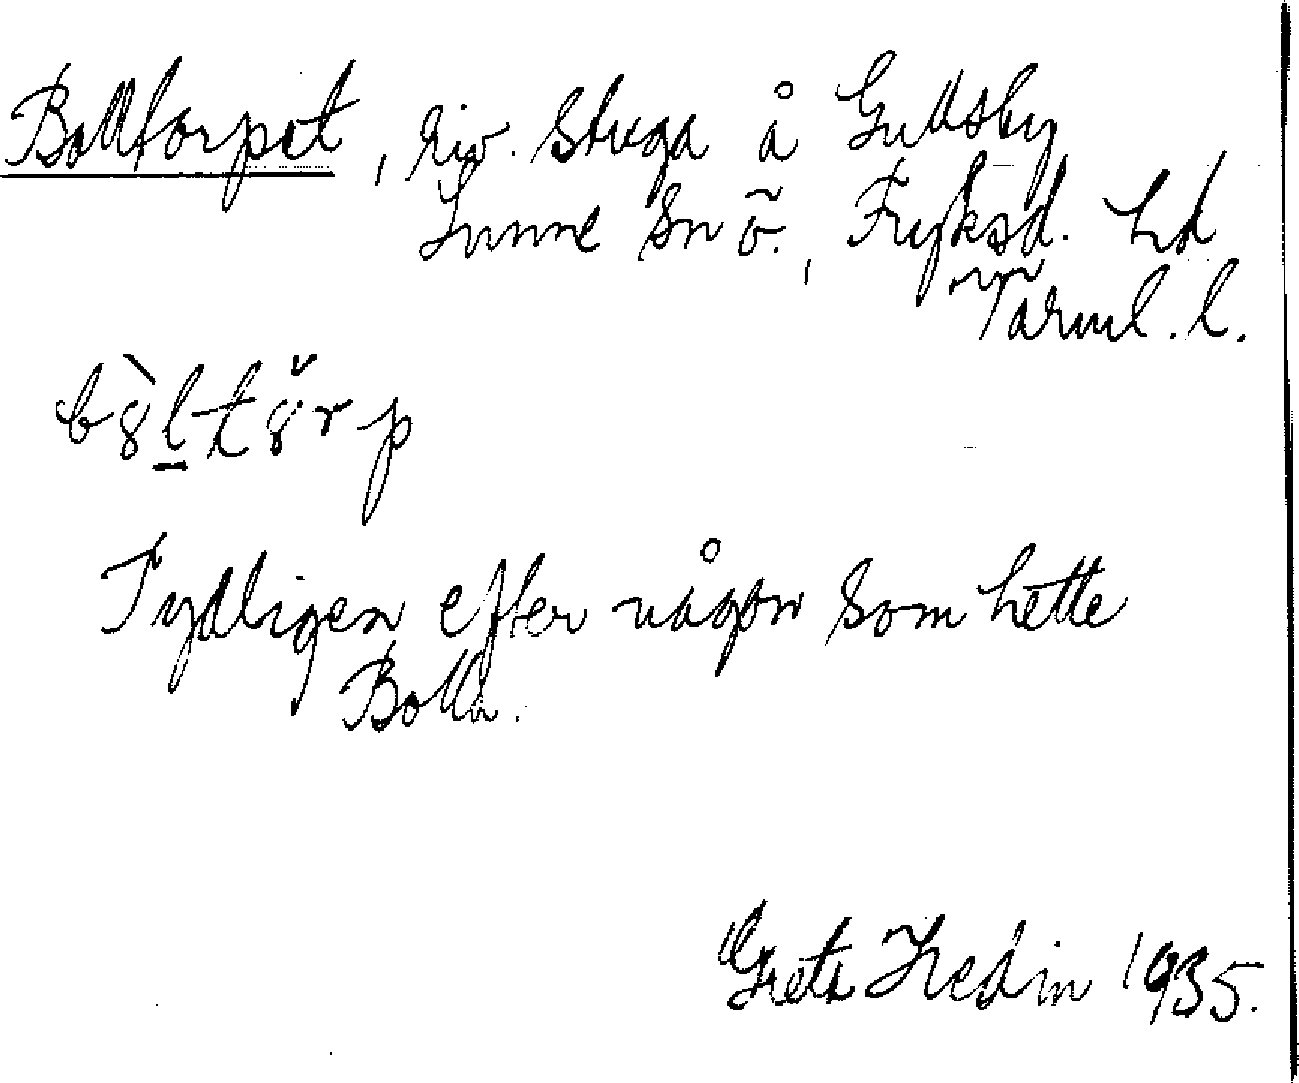 Bolltorpet, riv. stuga å Gullsby
Sunne sn ö., Fryksd. hd
Värml. l.
b8̀lt8̌rp
Tydligen efter någon som hette
Bolla.
Greta Hedin 1935.